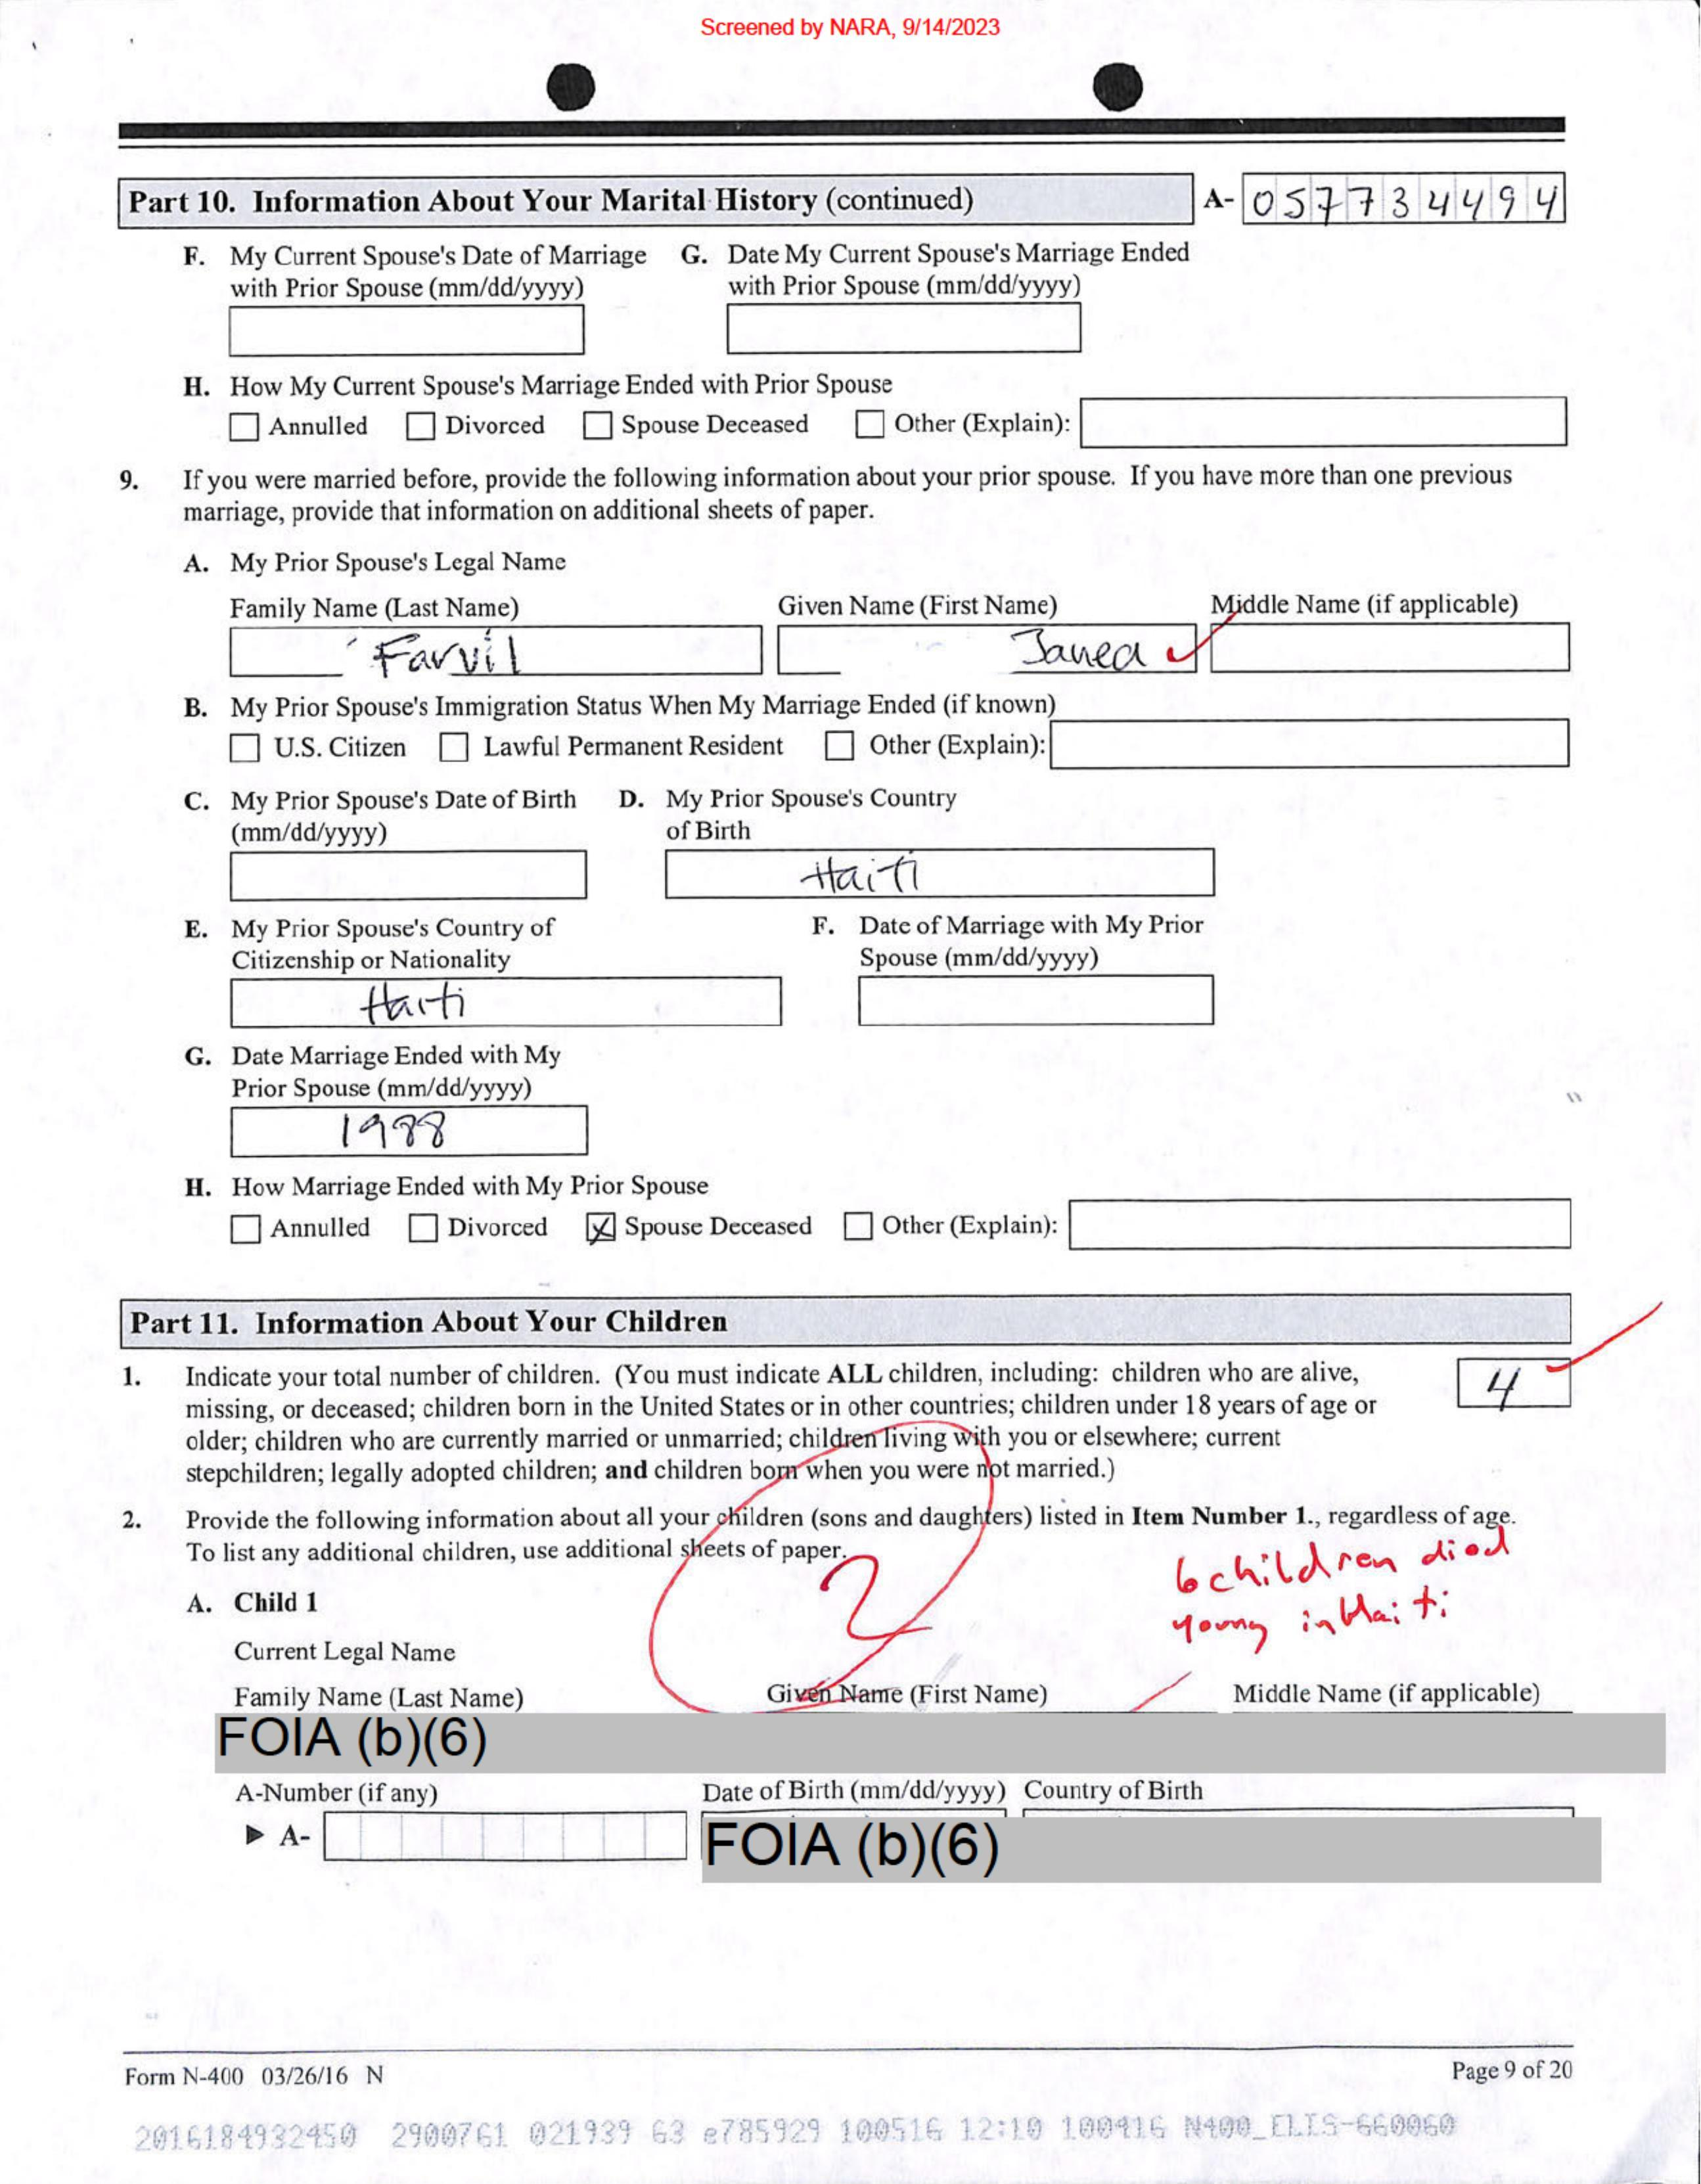 Screened by NARA, 9/14/2023
Part 10. Information About Your Marital History (continued) A- 057734494
F. My Current Spouse's Date of Marriage with Prior Spouse (mm/dd/yyyy)
G. Date My Current Spouse's Marriage Ended with Prior Spouse (mm/dd/yyyy)
H. How My Current Spouse's Marriage Ended with Prior Spouse
Annulled Divorced Spouse Deceased Other (Explain):
9. If you were married before, provide the following information about your prior spouse. If you have more than one previous
marriage, provide that information on additional sheets of paper.
A. My Prior Spouse's Legal Name
Family Name (Last Name) Given Name (First Name) Middle Name (if applicable)
Farvil Janea
B. My Prior Spouse's Immigration Status When My Marriage Ended (if known)
U.S. Citizen Lawful Permanent Resident Other (Explain):
C. My Prior Spouse's Date of Birth (mm/dd/yyyy)
D. My Prior Spouse's Country of Birth
Haiti
E. My Prior Spouse's Country of Citizenship or Nationality
Haiti
F. Date of Marriage with My Prior Spouse (mm/dd/yyyy)
G. Date Marriage Ended with My
Prior Spouse (mm/dd/yyyy)
1988
H. How Marriage Ended with My Prior Spouse
Annulled Divorced X Spouse Deceased Other (Explain):
Part 11. Information About Your Children
1. Indicate your total number of children. (You must indicate ALL children, including: children who are alive, 4
missing, or deceased; children born in the United States or in other countries; children under 18 years of age or
older; children who are currently married or unmarried; children living with you or elsewhere; current
stepchildren; legally adopted children; and children born when you were not married.)
2. Provide the following information about all your children (sons and daughters) listed in Item Number 1., regardless of age.
To list any additional children, use additional sheets of paper.
2
6 children died
young in Haiti
A. Child 1
Current Legal Name
Family Name (Last Name) Given Name (First Name) Middle Name (if applicable)
FOIA (b)(6)
A-Number (if any) Date of Birth (mm/dd/yyyy) Country of Birth
A- FOIA (b)(6)
Form N-400 03/26/16 N Page 9 of 20
2016184932450 2900761 021939 G3 e785929 100516 12:10 100416 N400_ELIS-660060